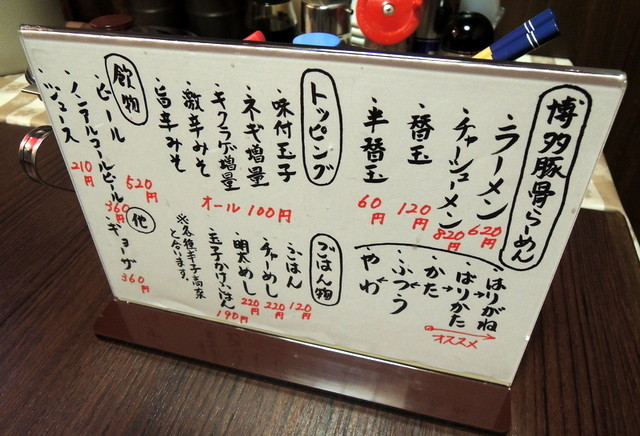 博多豚骨らーめん
・ラーメン 620円
・チャーシューメン 820円
・替玉 120円
・半替玉 60円
・はりがね
・ばりかた
・かた
・ふつう
・やわ
オススメ
トッピング
・味付玉子
・ネギ増量
・キクラゲ増量
・激辛みそ
・旨辛みそ
オール100円
ごはん物
・ごはん 120円
・チャーめし 220円
・明太めし 220円
・玉子かけごはん 190円
飲物
・ビール 520円
・ノンアルコールビール 360円
・ジュース 210円
他
・ギョーザ 360円